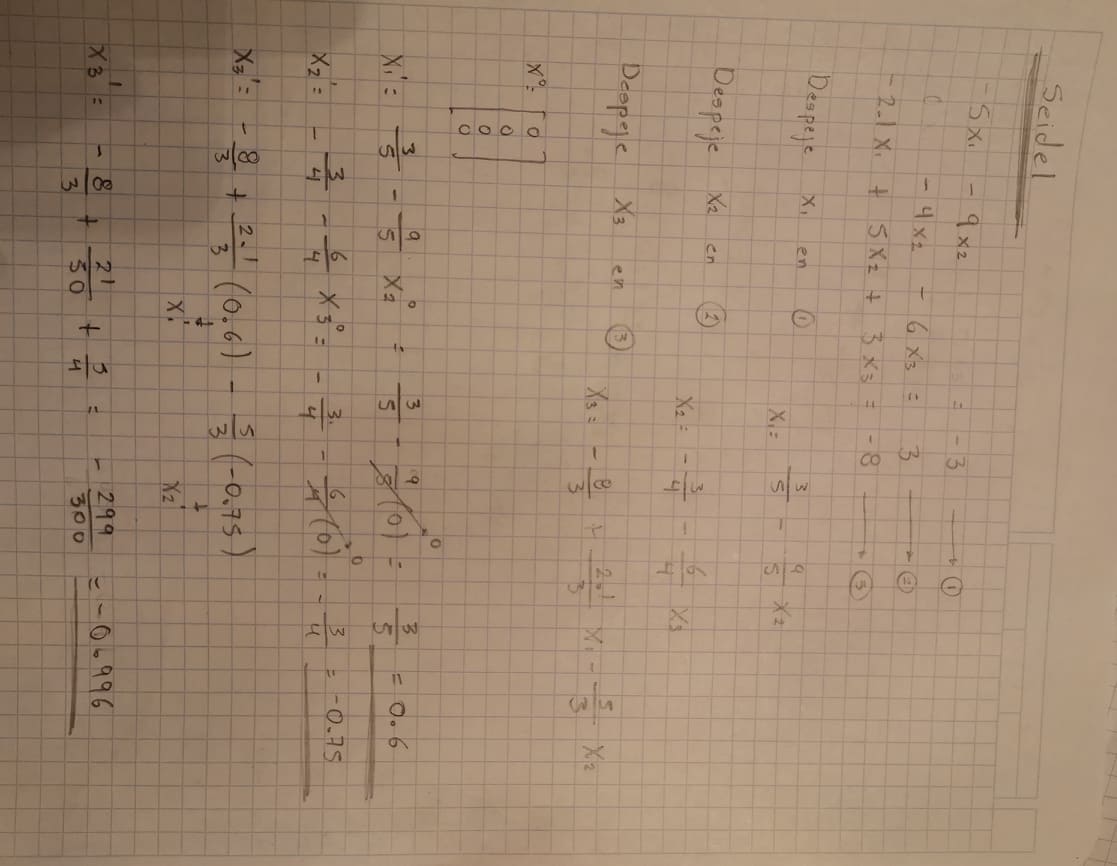 Seidel
-5x₁ - 9x₂ = -3 → ①
-4x₂ - 6x₃ = 3 → ②
-2.1x₁ + 5x₂ + 3x₃ = -8 → ③
Despeje x₁ en ① x₁ = 3/5 - 9/5 x₂
Despeje x₂ en ② x₂ = -3/4 - 6/4 x₃
Despeje x₃ en ③ x₃ = -8/3 + 2.1/3 x₁ - 5/3 x₂
x⁰ = [0 0 0 0]
x₁' = 3/5 - 9/5 x₂⁰ = 3/5 - 9/5 (0) → 0 = 3/5 = 0.6
x₂' = -3/4 - 6/4 x₃⁰ = -3/4 - 6/4 (0) → 0 = -3/4 = -0.75
x₃' = -8/3 + 2.1/3 (0.6) - 5/3 (-0.75)
x₁' x₂'
x₃' = -8/3 + 21/50 + 5/4 = -299/300 = -0.996